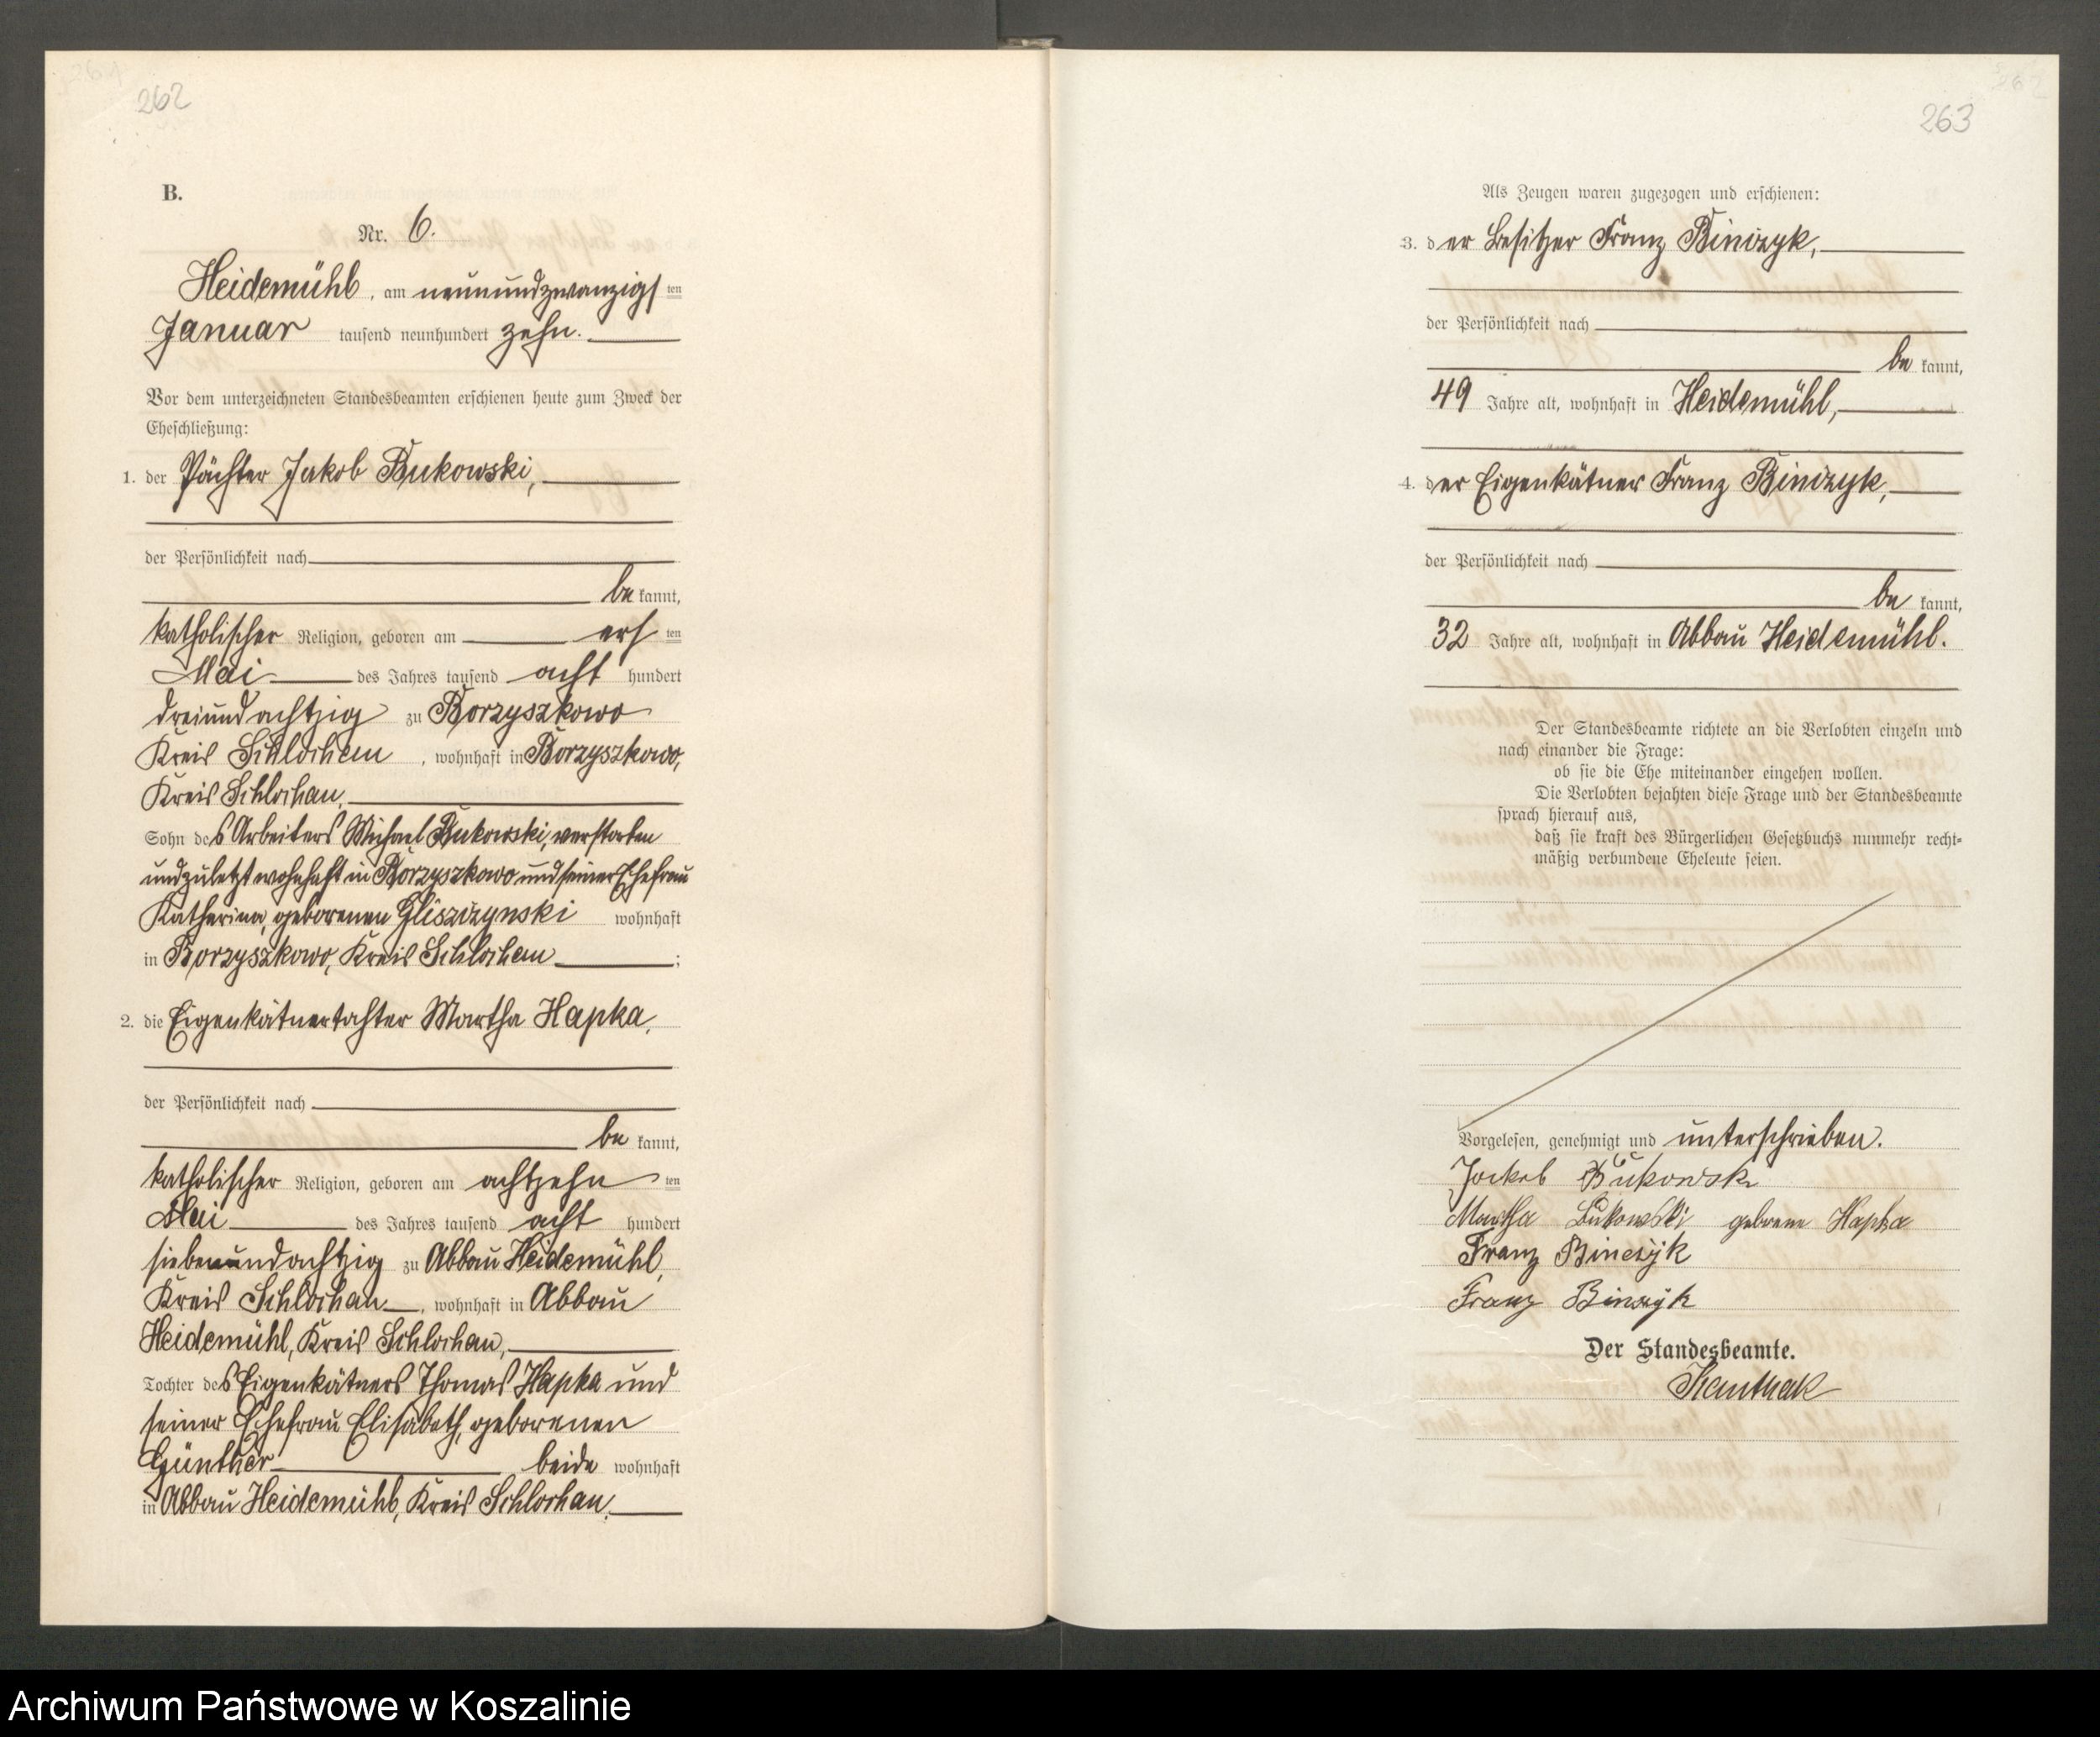 262
B.
Nr. 6.
Heidemühl, am neunundzwanzigsten
Januar tausend neunhundert zehn.
Vor dem unterzeichneten Standesbeamten erschienen heute zum Zweck der
Eheschließung:
1. der Pächter Jakob Bukowski,
der Persönlichkeit nach
be kannt,
katholischer Religion, geboren am ersten
Mai des Jahres tausend acht hundert
dreiundachtzig zu Borzyszkowo
Kreis Schlochau, wohnhaft in Borzyszkowo,
Kreis Schlochau,
Sohn des Arbeiters Michael Bukowski, verstorben
und zuletzt wohnhaft in Borzyszkowo und seiner Ehefrau
Katharina, geborenen Gliszczynski wohnhaft
in Borzyszkowo, Kreis Schlochau;
2. die Eigenkätnertochter Martha Hapka,
der Persönlichkeit nach
be kannt,
katholischer Religion, geboren am achtzehnten
Mai des Jahres tausend acht hundert
siebenundachtzig zu Abbau Heidemühl,
Kreis Schlochau, wohnhaft in Abbau
Heidemühl, Kreis Schlochau,
Tochter des Eigenkätners Thomas Hapka und
seiner Ehefrau Elisabeth, geborenen
Günther beide wohnhaft
in Abbau Heidemühl, Kreis Schlochau.
263
Als Zeugen waren zugezogen und erschienen:
3. der Besitzer Franz Binczyk,
der Persönlichkeit nach
be kannt,
49 Jahre alt, wohnhaft in Heidemühl,
4. der Eigenkätner Franz Binczyk,
der Persönlichkeit nach
be kannt,
32 Jahre alt, wohnhaft in Abbau Heidemühl.
Der Standesbeamte richtete an die Verlobten einzeln und
nach einander die Frage:
ob sie die Ehe miteinander eingehen wollen.
Die Verlobten bejahten diese Frage und der Standesbeamte
sprach hierauf aus,
daß sie kraft des Bürgerlichen Gesetzbuchs nunmehr recht-
mäßig verbundene Eheleute seien.
Vorgelesen, genehmigt und unterschrieben.
Jackob Bukowski
Martha Bukowski geborene Hapka
Franz Binczyk
Franz Binczyk
Der Standesbeamte.
Archiwum Państwowe w Koszalinie